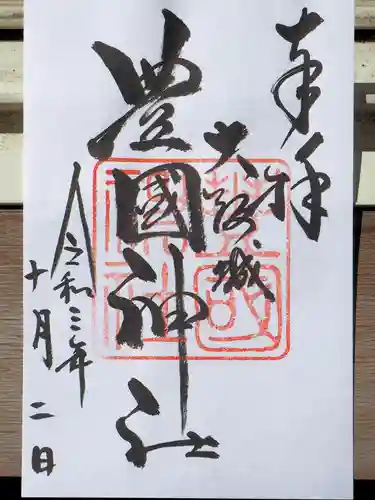 奉拝
大阪城
豊國神社
令和三年
十月二日